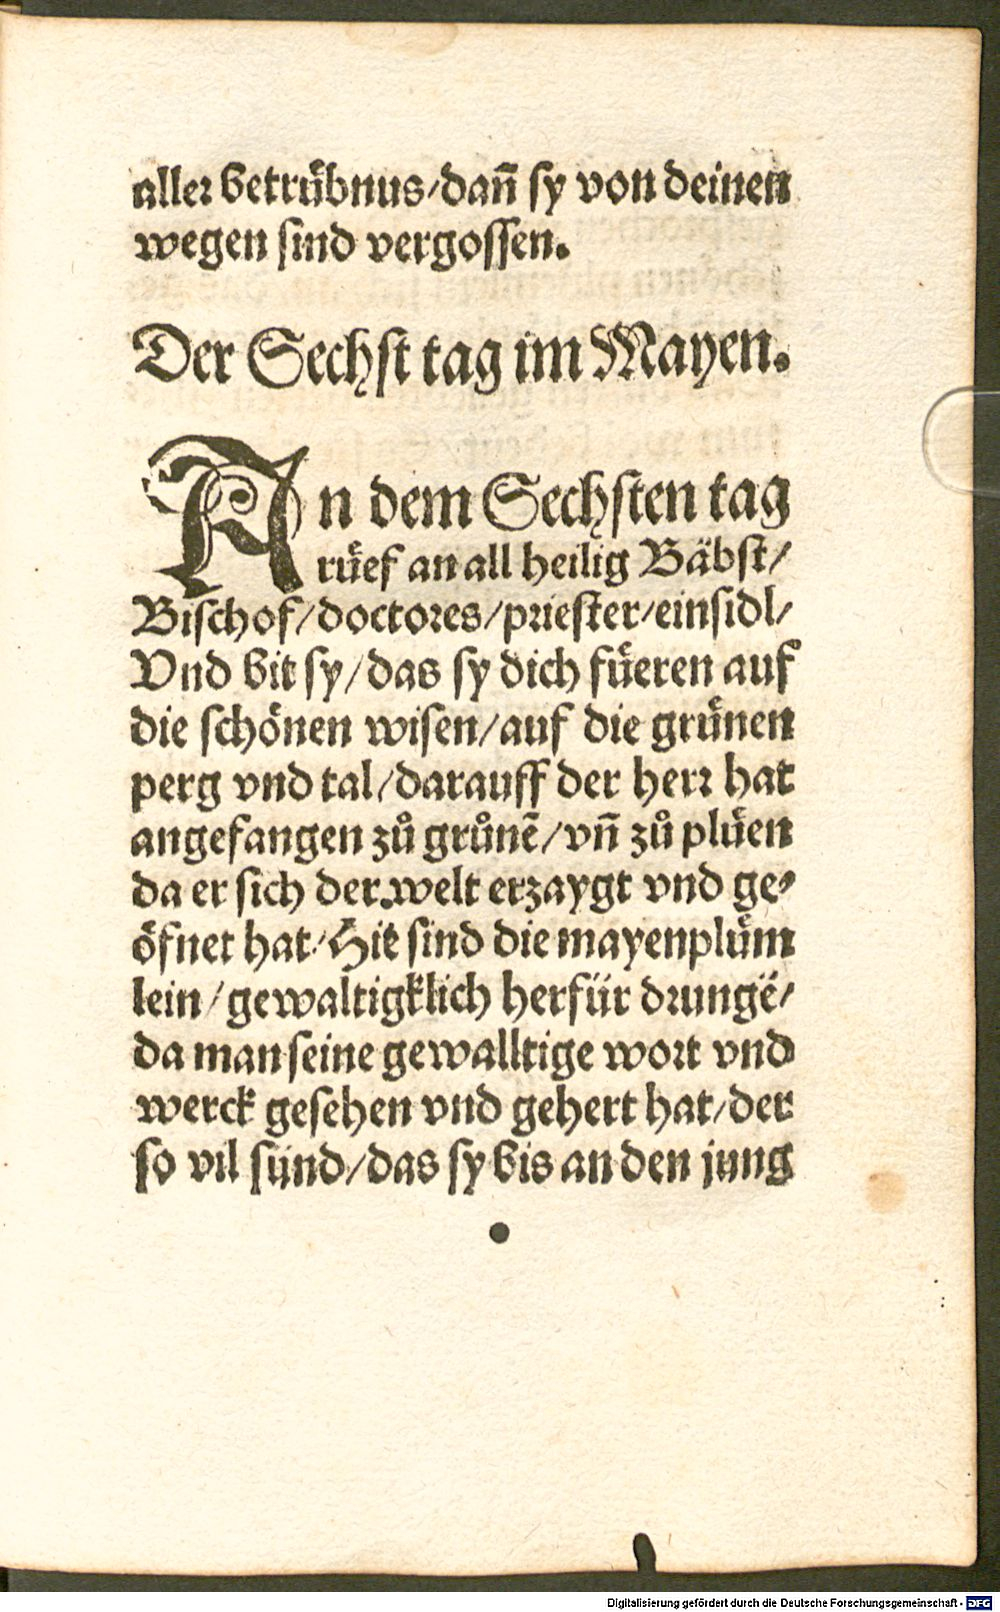 aller betruͤbnus/dañ sy von deinen
wegen sind vergossen.
Der Sechst tag im Mayen.
An dem Sechsten tag
ruͤef an all heilig Bäbst/
Bischof/doctores/priester/einsidl/
Vnd bit sy/das sy dich fuͤeren auf
die schoͤnen wisen/auf die gruͤnen
perg vnd tal/darauff der herr hat
angefangen zů grůnẽ/vñ zů pluͤen
da er sich der welt erzaygt vnd ge-
oͤfnet hat/Hie sind die mayenpluͤm
lein/gewaltigklich herfür drungẽ/
da man seine gewalltige wort vnd
werck gesehen vnd gehert hat/der
so vil sind/das sy bis an den jung
Digitalisierung gefördert durch die Deutsche Forschungsgemeinschaft - DFG